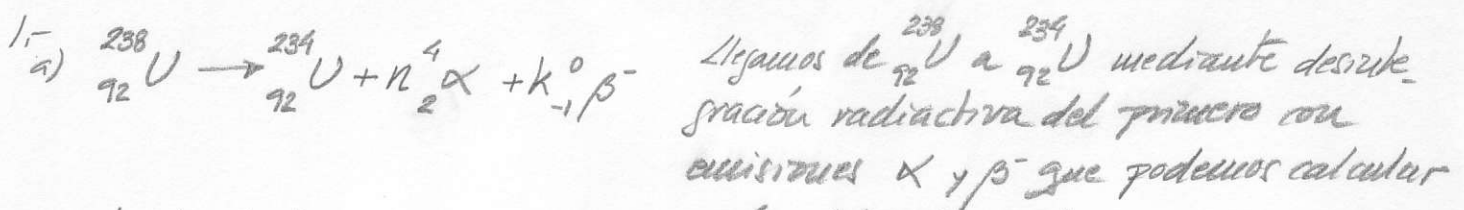 1.-
a) ²³⁸₉₂U → ²³⁴₉₂U + n ⁴₂α + k ⁰₋₁β⁻
Llegamos de ²³⁸₉₂U a ²³⁴₉₂U mediante desinte-
gración radiactiva del primero con
emisiones α y β⁻ que podemos calcular